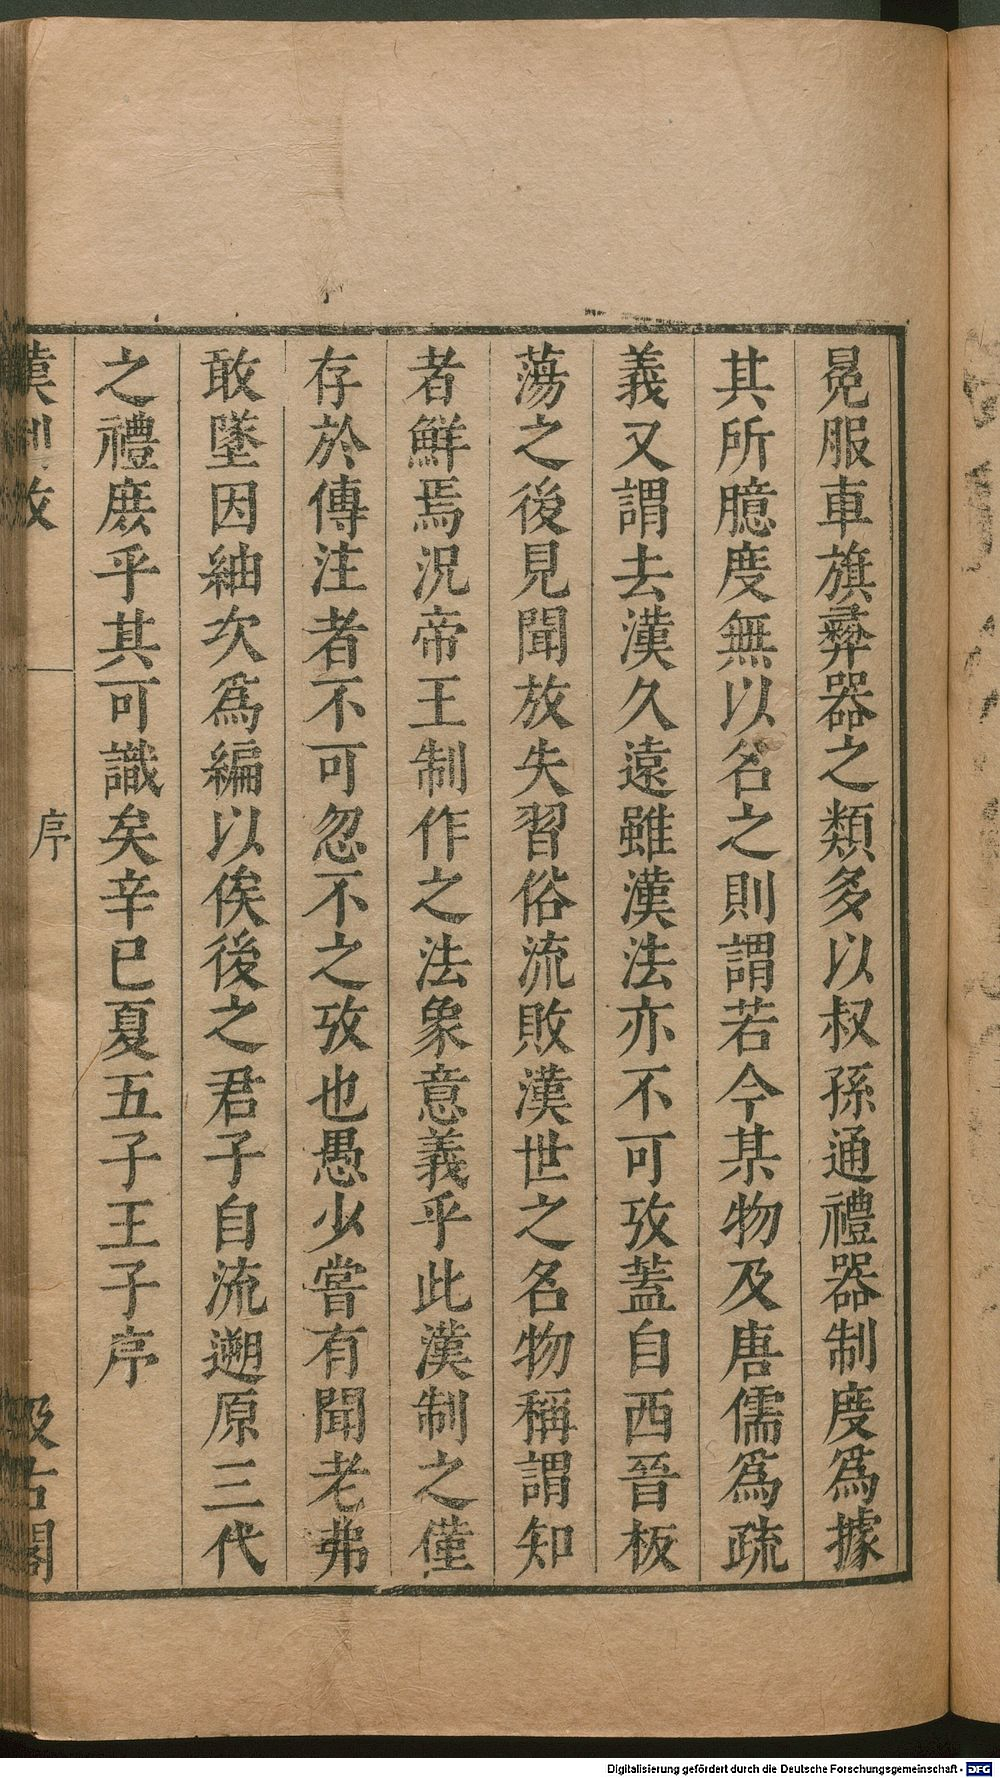 冕服車旗彞器之類多以叔孫通禮器制度爲據
其所臆度無以名之則謂若今某物及唐儒爲疏
義又謂去漢久遠雖漢法亦不可攷蓋自西晉板
蕩之後見聞放失習俗流敗漢世之名物稱謂知
者鮮焉況帝王制作之法象意義乎此漢制之僅
存於傳注者不可忽不之攷也愚少嘗有聞老弗
敢墜因紬次爲編以俟後之君子自流遡原三代
之禮庶乎其可識矣辛巳夏五子王子序
漢制攷
序
汲古閣
Digitalisierung gefördert durch die Deutsche Forschungsgemeinschaft - DFG